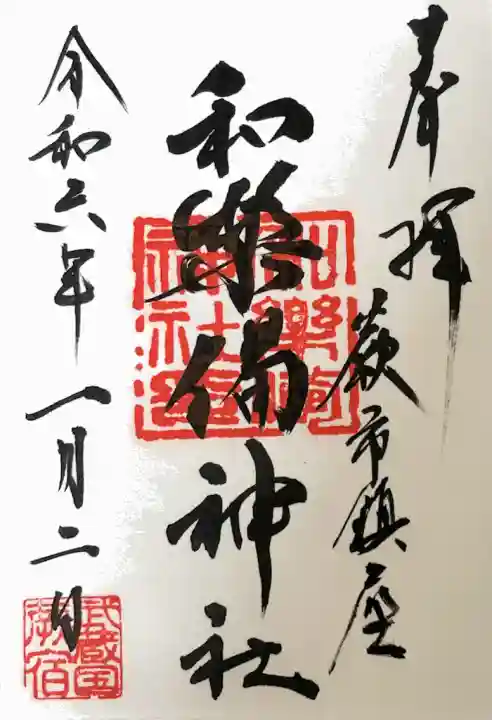 奉拝
蕨市鎮座
和樂備神社
和樂備神社
令和六年一月二日
武蔵国
蕨宿